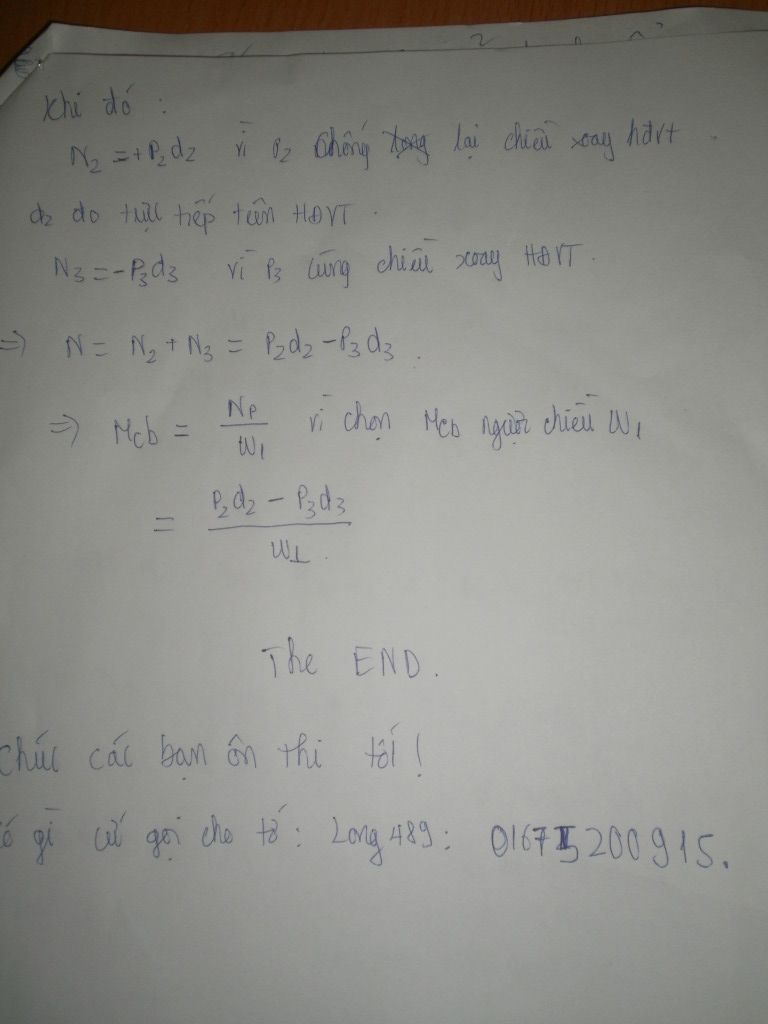 Khi đó :
N2 = +P2d2 vì P2 Chống lại chiều xoay hđvt .
d2 do trực tiếp trên HĐVT .
N3 = -P3d3 vì P3 cùng chiều xoay HĐVT .
=> N = N2 + N3 = P2d2 - P3d3 .
=> Mcb = Np/W1 vì chọn Mcb ngược chiều W1
= (P2d2 - P3d3)/W1 .
The END .
chúc các bạn ôn thi tốt !
ó gì cứ gọi cho tớ : Long 489 : 01675200915 .